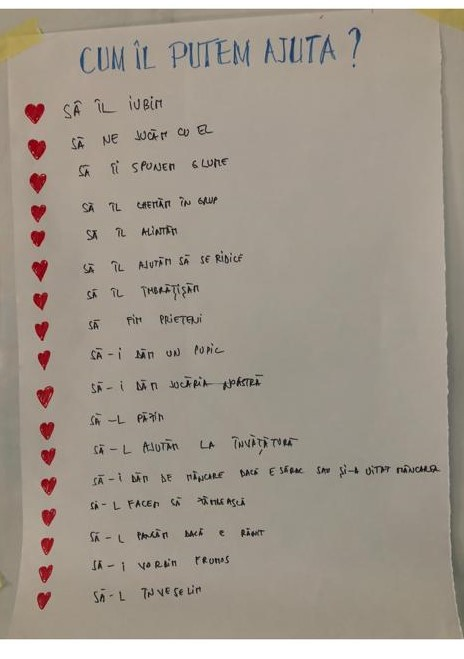 CUM ÎL PUTEM AJUTA?
SĂ ÎL IUBIM
SĂ NE JUCĂM CU EL
SĂ ÎI SPUNEM GLUME
SĂ ÎL CHEMĂM ÎN GRUP
SĂ ÎL ALINTĂM
SĂ ÎL AJUTĂM SĂ SE RIDICE
SĂ ÎL ÎMBRĂȚIȘĂM
SĂ FIM PRIETENI
SĂ-I DĂM UN PUPIC
SĂ-I DĂM JUCĂRIA NOASTRĂ
SĂ-L PĂZIM
SĂ-L AJUTĂM LA ÎNVĂȚĂTURĂ
SĂ-I DĂM DE MÂNCARE DACĂ E SĂRAC SAU ȘI-A UITAT MÂNCAREA
SĂ-L FACEM SĂ ZÂMBEASCĂ
SĂ-L PANSĂM DACĂ E RĂNIT
SĂ-I VORBIM FRUMOS
SĂ-L ÎNVESELIM